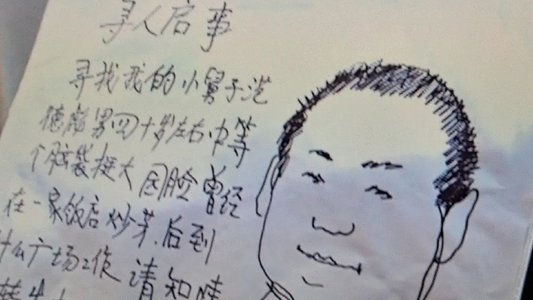 寻人启事
寻找我的小舅子范
德彪男四十岁左右中等
个脑袋挺大因脸曾经
在一家饭店炒芽后到
什么广场工作请知情